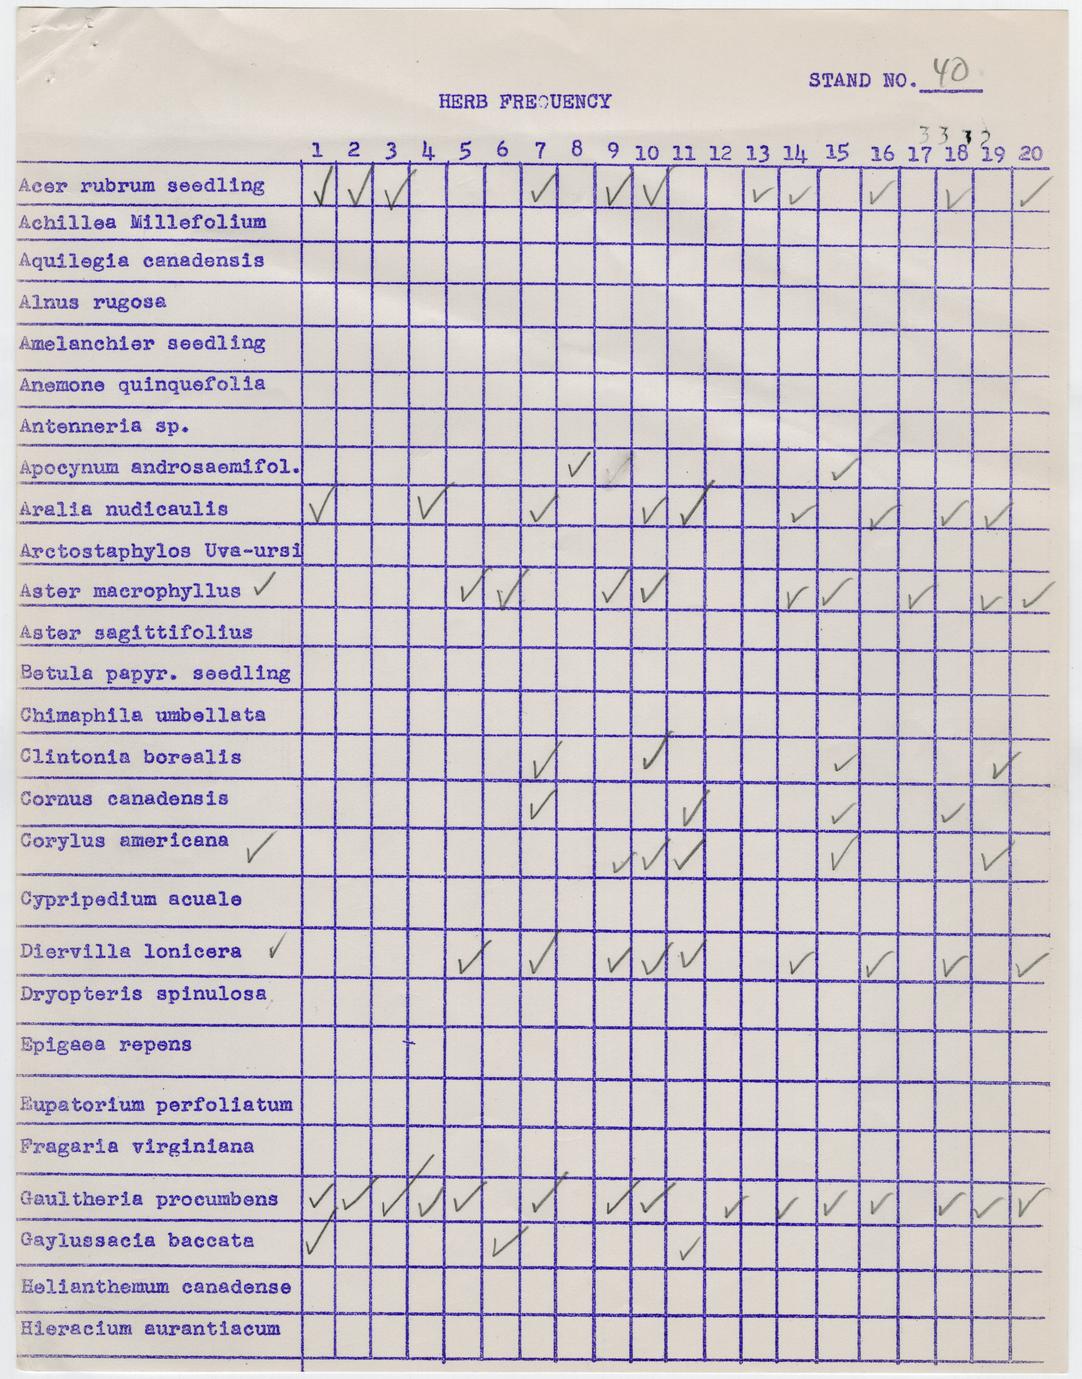 STAND NO. 40
HERB FREQUENCY
3 3 3 2
1 2 3 4 5 6 7 8 9 10 11 12 13 14 15 16 17 18 19 20
Acer rubrum seedling ✓ ✓ ✓ ✓ ✓ ✓ ✓ ✓ ✓ ✓ ✓
Achillea Millefolium
Aquilegia canadensis
Alnus rugosa
Amelanchier seedling
Anemone quinquefolia
Antenneria sp.
Apocynum androsaemifol. ✓ ✓
Aralia nudicaulis ✓ ✓ ✓ ✓ ✓ ✓ ✓ ✓ ✓
Arctostaphylos Uva-ursi
Aster macrophyllus ✓ ✓ ✓ ✓ ✓ ✓ ✓ ✓ ✓ ✓
Aster sagittifolius
Betula papyr. seedling
Chimaphila umbellata
Clintonia borealis ✓ ✓ ✓ ✓
Cornus canadensis ✓ ✓ ✓ ✓
Corylus americana ✓ ✓ ✓ ✓ ✓ ✓
Cypripedium acuale
Diervilla lonicera ✓ ✓ ✓ ✓ ✓ ✓ ✓ ✓ ✓ ✓
Dryopteris spinulosa
Epigaea repens
Eupatorium perfoliatum
Fragaria virginiana
Gaultheria procumbens ✓ ✓ ✓ ✓ ✓ ✓ ✓ ✓ ✓ ✓ ✓ ✓ ✓ ✓ ✓
Gaylussacia baccata ✓ ✓ ✓
Helianthemum canadense
Hieracium aurantiacum